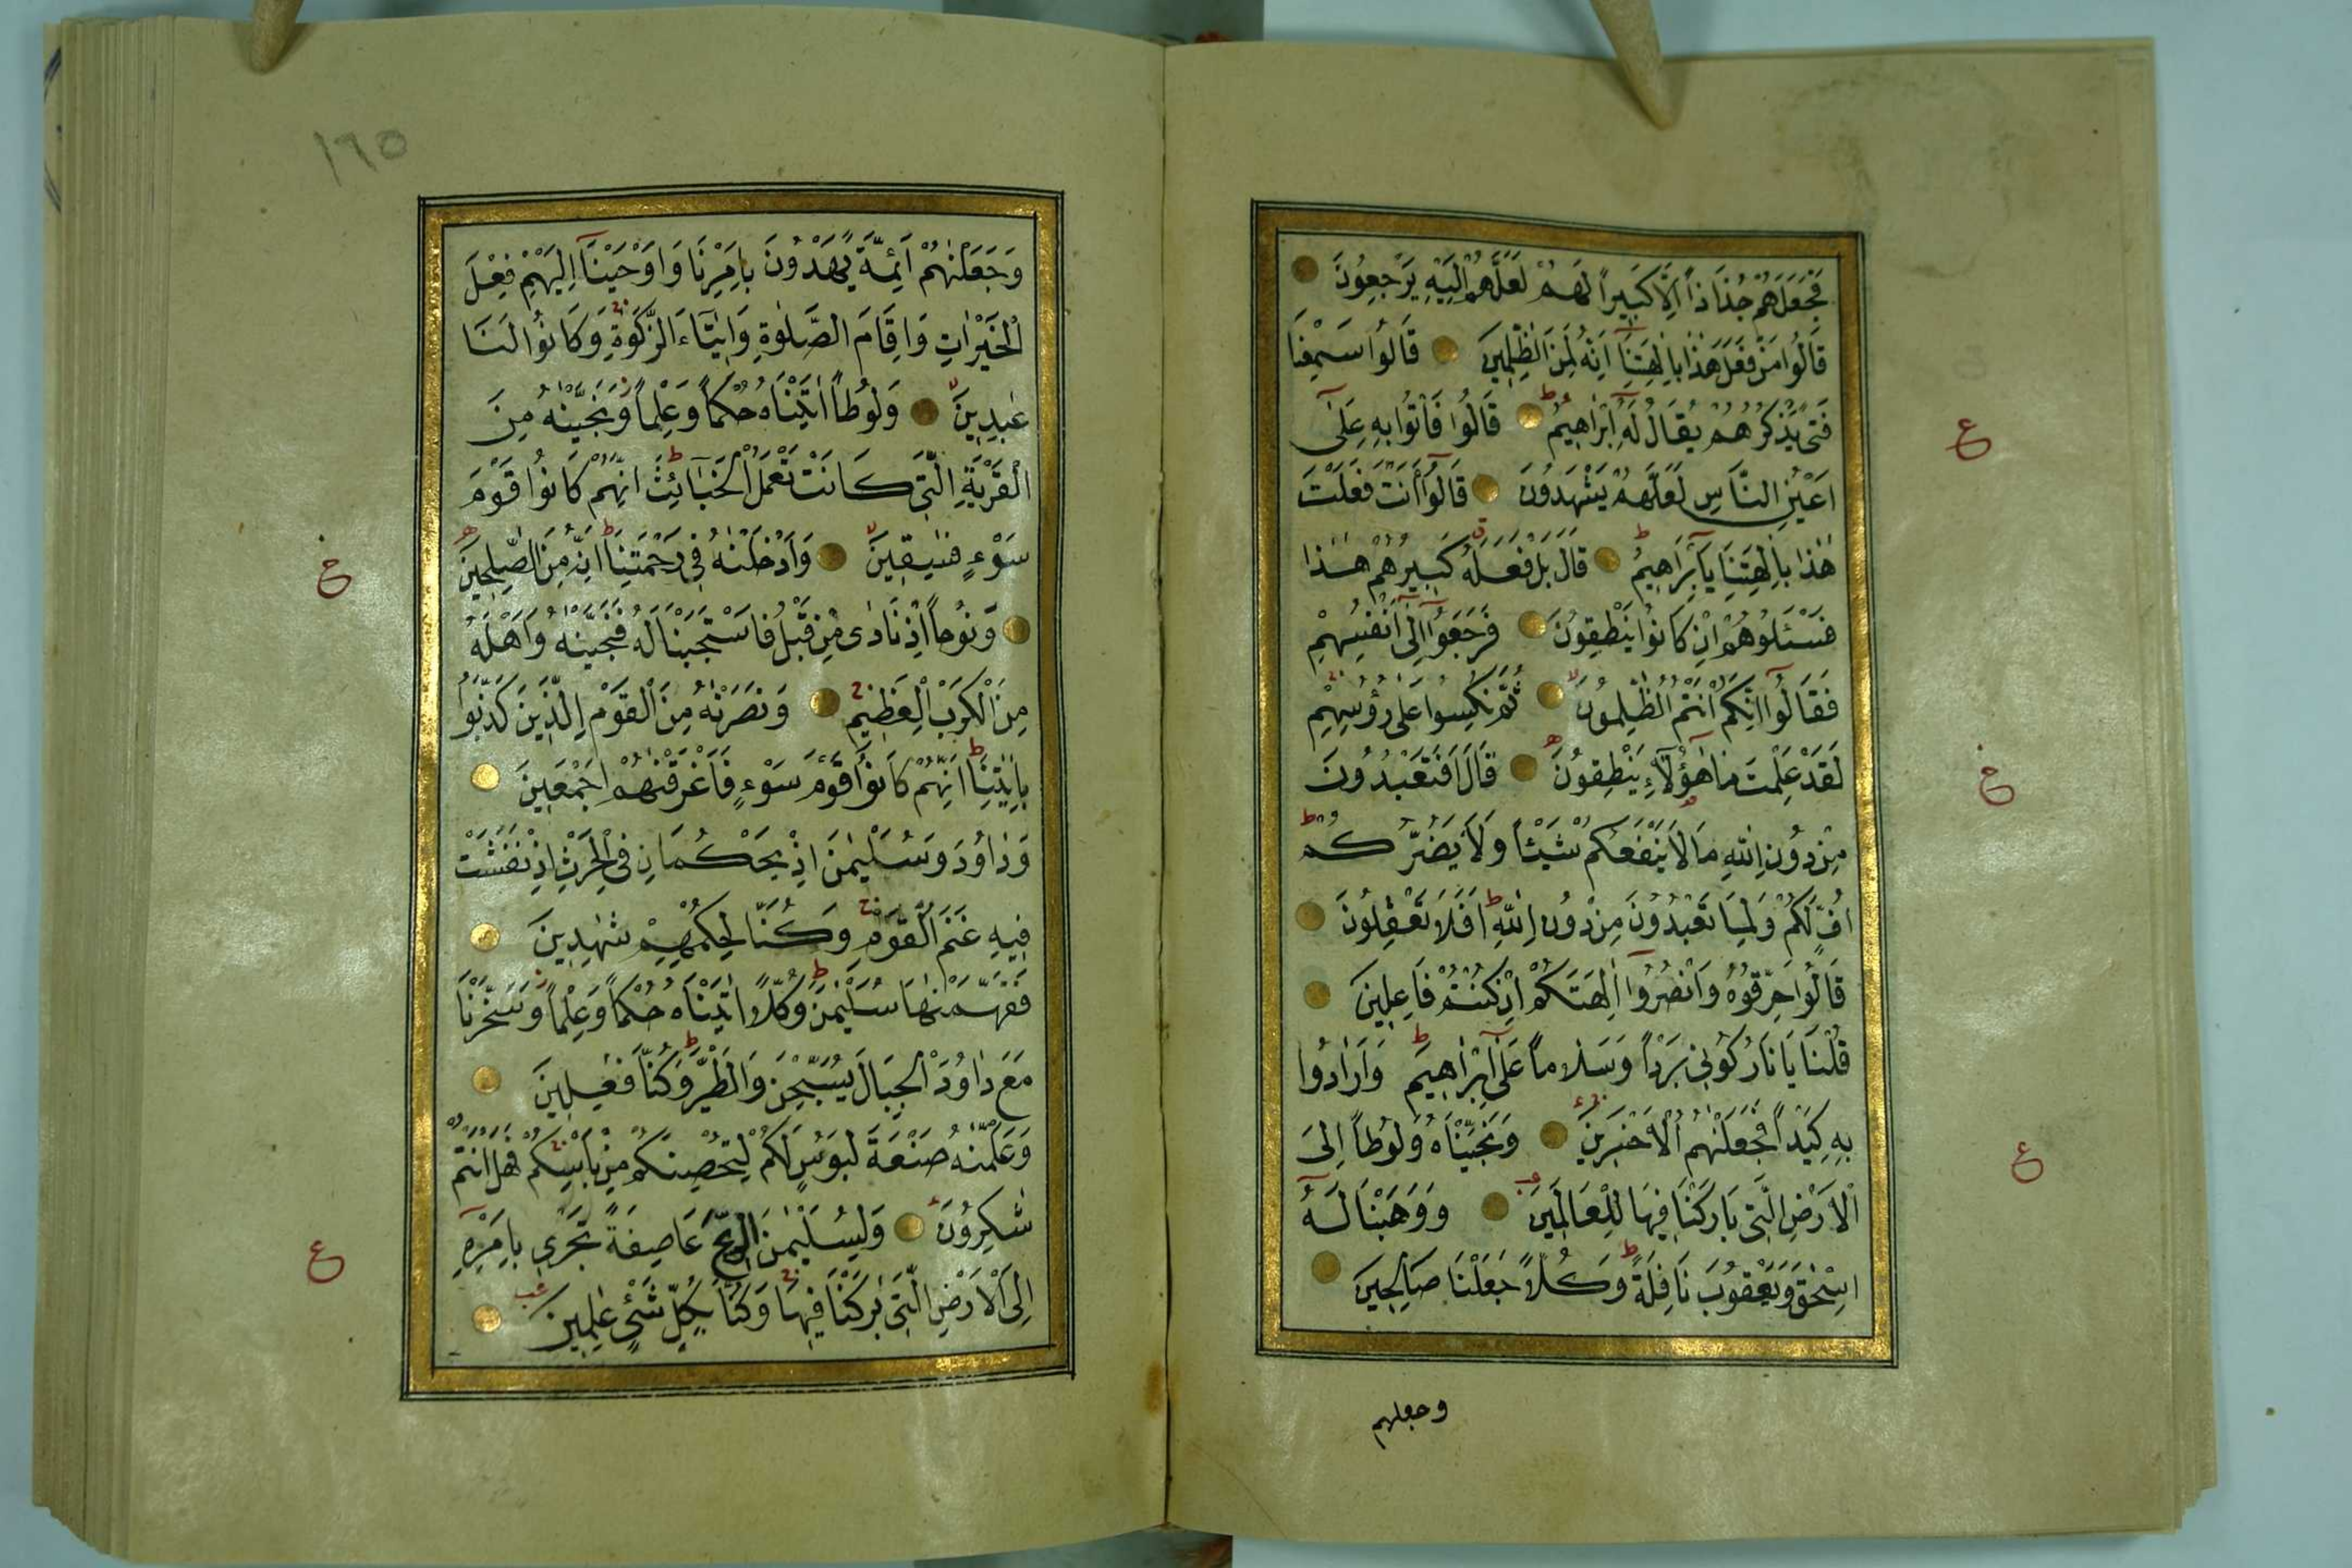 فَجَعَلَهُمْ جُذَاذاً اِلَّا كَبِيراً لَهُمْ لَعَلَّهُمْ اِلَيْهِ يَرْجِعُونَ
قَالُوا مَنْ فَعَلَ هٰذَا بِاٰلِهَتِنَٓا اِنَّهُ لَمِنَ الظّٰلِمِينَ قَالُوا سَمِعْنَا
فَتًى يَذْكُرُهُمْ يُقَالُ لَهُٓ اِبْرَاهِيمُ قَالُوا فَأْتُوا بِهِ عَلٰٓى
اَعْيُنِ النَّاسِ لَعَلَّهُمْ يَشْهَدُونَ قَالُٓوا ءَاَنْتَ فَعَلْتَ
هٰذَا بِاٰلِهَتِنَا يَٓا اِبْرَاهِيمُ قَالَ بَلْ فَعَلَهُ كَبِيرُهُمْ هٰذَا
فَسْئَلُوهُمْ اِنْ كَانُوا يَنْطِقُونَ فَرَجَعُٓوا اِلٰٓى اَنْفُسِهِمْ
فَقَالُٓوا اِنَّكُمْ اَنْتُمُ الظّٰلِمُونَ ثُمَّ نُكِسُوا عَلٰى رُؤُسِهِمْ
لَقَدْ عَلِمْتَ مَا هٰٓؤُلَٓاءِ يَنْطِقُونَ قَالَ اَفَتَعْبُدُونَ
مِنْ دُونِ اللّٰهِ مَا لَا يَنْفَعُكُمْ شَيْئاً وَلَا يَضُرُّكُمْ
اُفٍّ لَكُمْ وَلِمَا تَعْبُدُونَ مِنْ دُونِ اللّٰهِ اَفَلَا تَعْقِلُونَ
قَالُوا حَرِّقُوهُ وَانْصُرُٓوا اٰلِهَتَكُمْ اِنْ كُنْتُمْ فَاعِلِينَ
قُلْنَا يَا نَارُ كُونِي بَرْداً وَسَلَاماً عَلٰٓى اِبْرَاهِيمَ وَاَرَادُوا
بِهِ كَيْداً فَجَعَلْنٰهُمُ الْاَخْسَرِينَ وَنَجَّيْنَاهُ وَلُوطاً اِلَى
الْاَرْضِ الَّتِي بَارَكْنَا فِيهَا لِلْعَالَمِينَ وَوَهَبْنَا لَهُٓ
اِسْحٰقَ وَيَعْقُوبَ نَافِلَةً وَكُلاًّ جَعَلْنَا صَالِحِينَ
وجعلهم
ع
خ
ع
١٦٥
وَجَعَلْنٰهُمْ اَئِمَّةً يَهْدُونَ بِاَمْرِنَا وَاَوْحَيْنَٓا اِلَيْهِمْ فِعْلَ
الْخَيْرٰاتِ وَاِقَامَ الصَّلٰوةِ وَاِيتَٓاءَ الزَّكٰوةِ وَكَانُوا لَنَا
عٰبِدِينَ وَلُوطاً اٰتَيْنَاهُ حُكْماً وَعِلْماً وَنَجَّيْنٰهُ مِنَ
الْقَرْيَةِ الَّتِي كَانَتْ تَعْمَلُ الْخَبَٓائِثَ اِنَّهُمْ كَانُوا قَوْمَ
سَوْءٍ فٰسِقِينَ وَاَدْخَلْنٰهُ فِي رَحْمَتِنَا اِنَّهُ مِنَ الصّٰلِحِينَ
وَنُوحاً اِذْ نَادٰى مِنْ قَبْلُ فَاسْتَجَبْنَا لَهُ فَنَجَّيْنٰهُ وَاَهْلَهُ
مِنَ الْكَرْبِ الْعَظِيمِ وَنَصَرْنٰهُ مِنَ الْقَوْمِ الَّذِينَ كَذَّبُوا
بِاٰيٰتِنَا اِنَّهُمْ كَانُوا قَوْمَ سَوْءٍ فَاَغْرَقْنٰهُمْ اَجْمَعِينَ
وَدٰاوُدَ وَسُلَيْمٰنَ اِذْ يَحْكُمَانِ فِي الْحَرْثِ اِذْ نَفَشَتْ
فِيهِ غَنَمُ الْقَوْمِ وَكُنَّا لِحُكْمِهِمْ شٰهِدِينَ
فَفَهَّمْنٰهَا سُلَيْمٰنَ وَكُلاًّ اٰتَيْنَاهُ حُكْماً وَعِلْماً وَسَخَّرْنَا
مَعَ دٰاوُدَ الْجِبَالَ يُسَبِّحْنَ وَالطَّيْرَ وَكُنَّا فٰعِلِينَ
وَعَلَّمْنٰهُ صَنْعَةَ لَبُوسٍ لَكُمْ لِتُحْصِنَكُمْ مِنْ بَأْسِكُمْ فَهَلْ اَنْتُمْ
شٰكِرُونَ وَلِسُلَيْمٰنَ الرِّيحَ عَاصِفَةً تَجْرِي بِاَمْرِهِٓ
اِلَى الْاَرْضِ الَّتِي بٰرَكْنَا فِيهَا وَكُنَّا بِكُلِّ شَيْءٍ عٰلِمِينَ
خ
ع